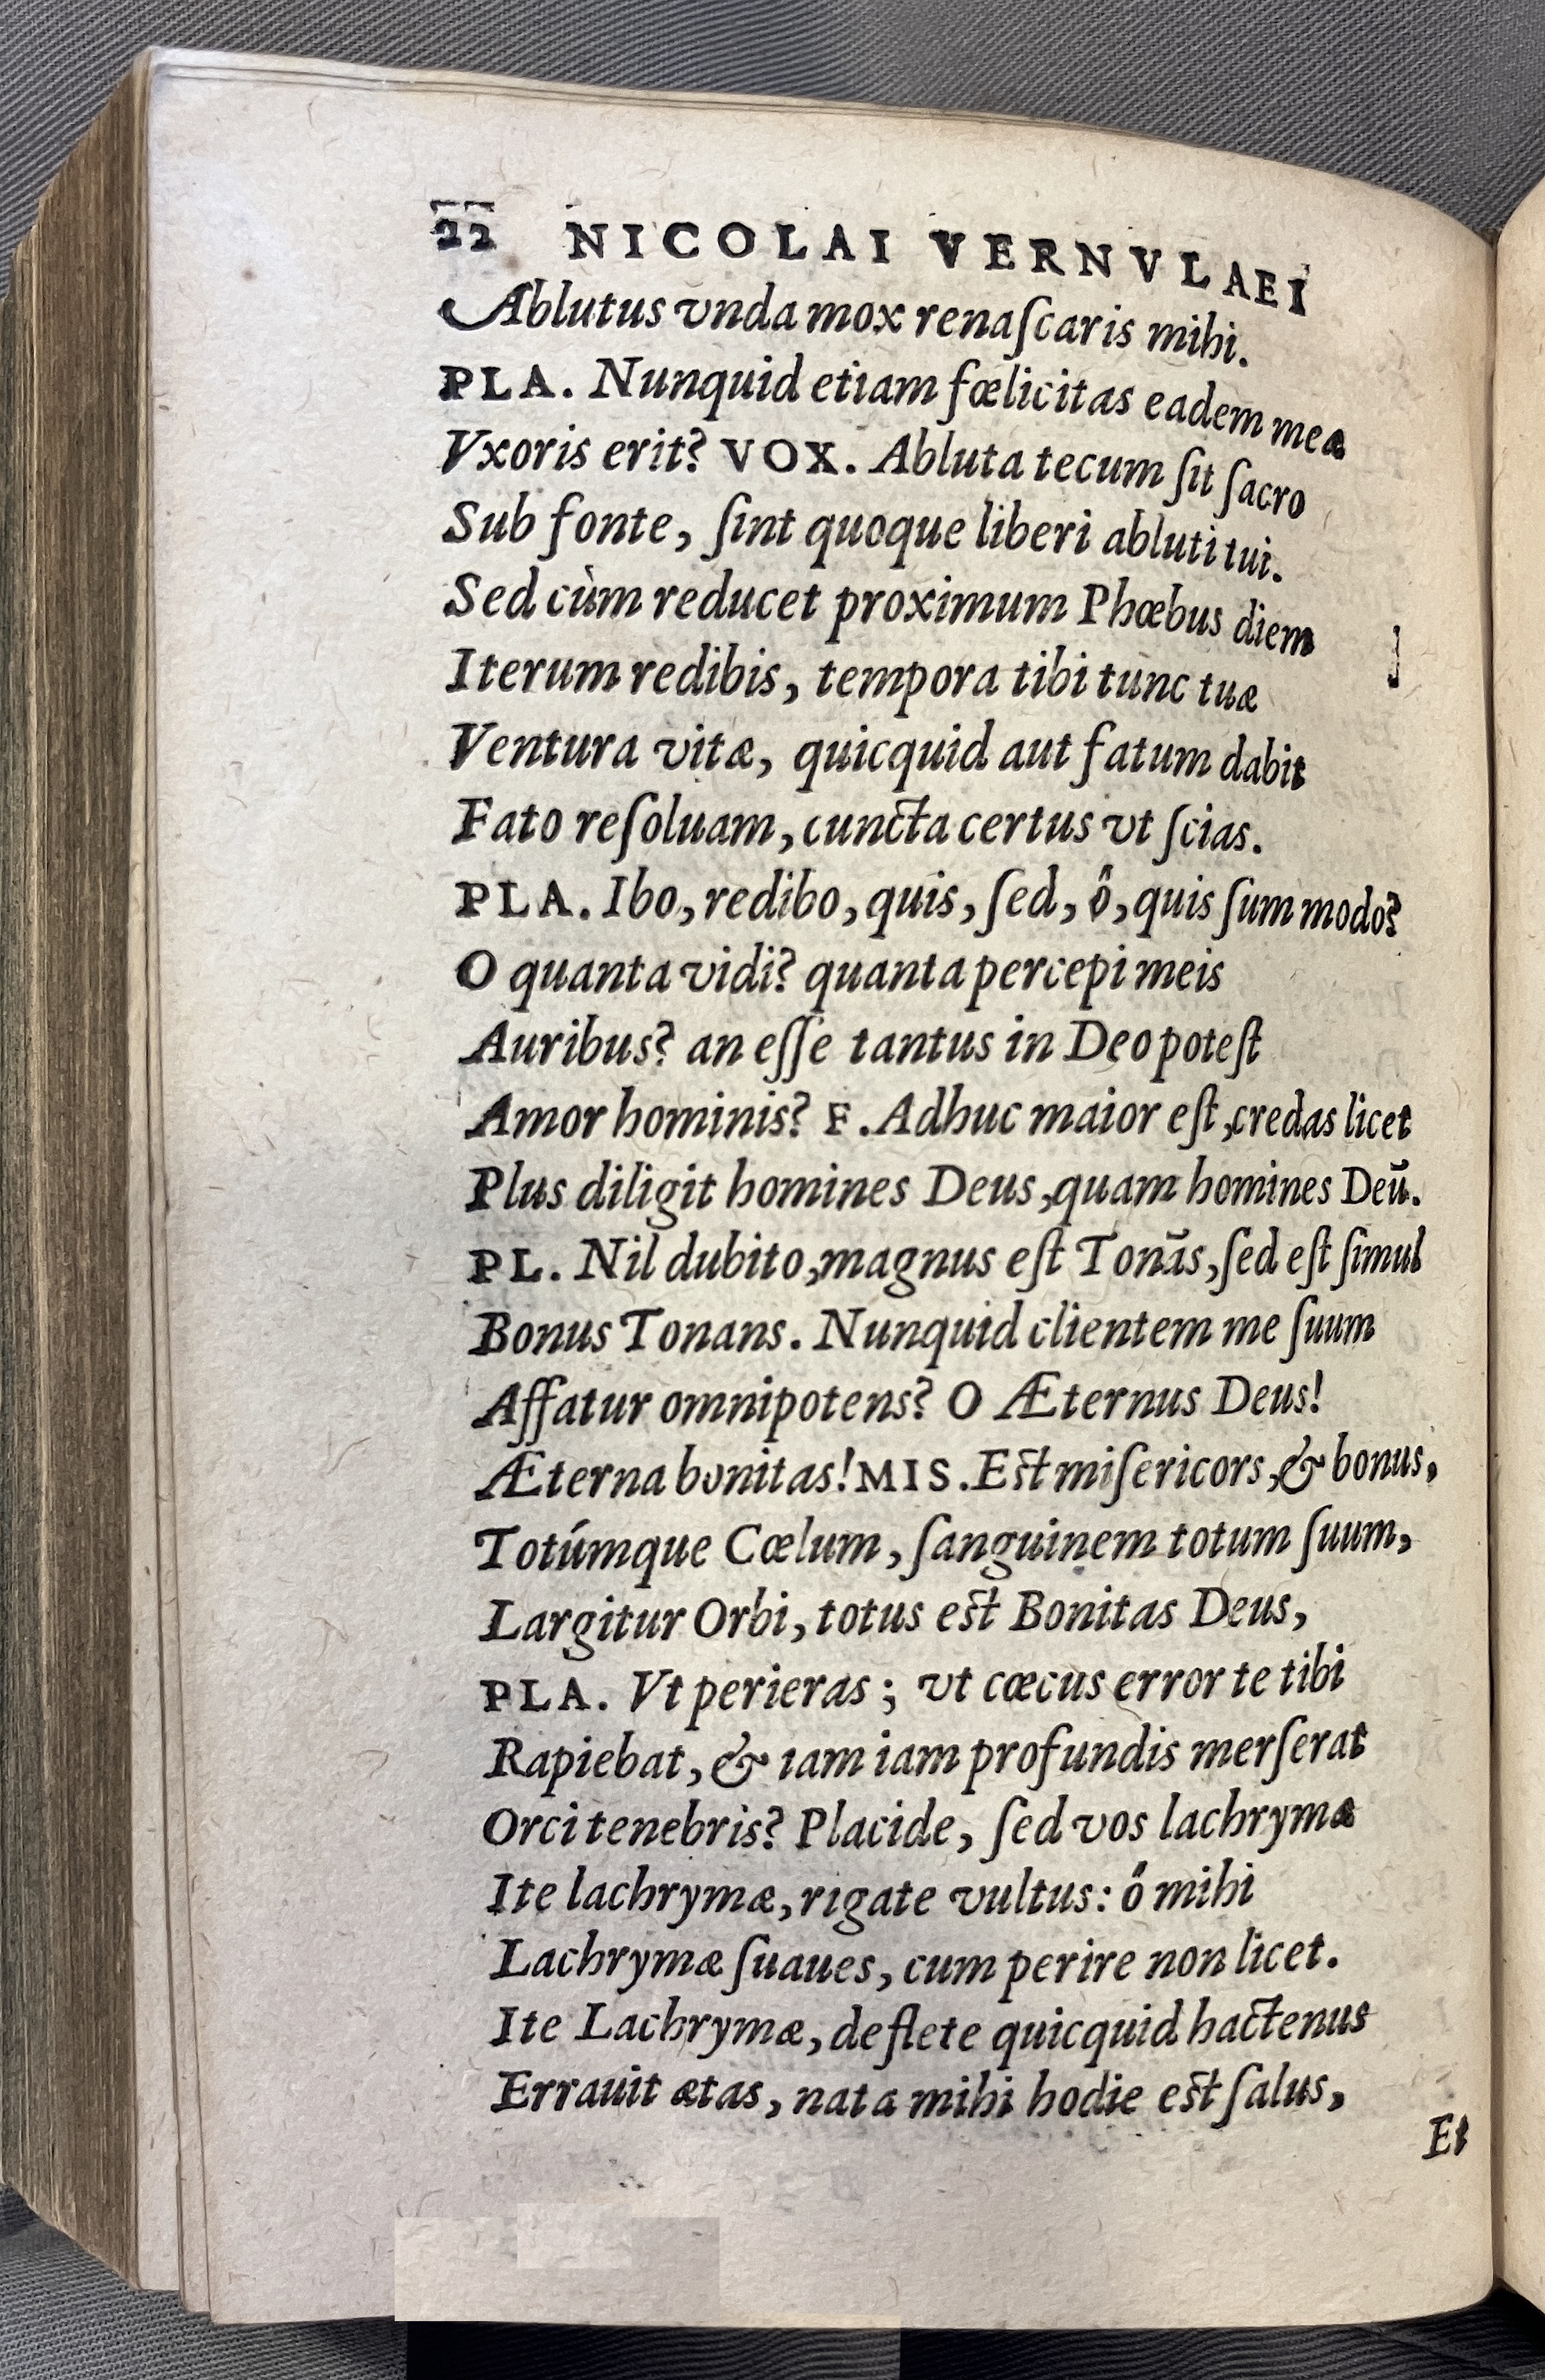 22 NICOLAI VERNVLAEI
Ablutus vnda mox renaſcaris mihi.
PLA. Nunquid etiam fœlicitas eadem meæ
Vxoris erit? VOX. Abluta tecum ſit ſacro
Sub fonte, ſint quoque liberi abluti tui.
Sed cùm reducet proximum Phœbus diem
Iterum redibis, tempora tibi tunc tuæ
Ventura vitæ, quicquid aut fatum dabit
Fato reſoluam, cuncta certus vt ſcias.
PLA. Ibo, redibo, quis, ſed, ô, quis ſum modo?
O quanta vidi? quanta percepi meis
Auribus? an eſſe tantus in Deo poteſt
Amor hominis? F. Adhuc maior eſt, credas licet
Plus diligit homines Deus, quam homines Deū.
PL. Nil dubito, magnus eſt Tonās, ſed eſt ſimul
Bonus Tonans. Nunquid clientem me ſuum
Affatur omnipotens? O Æternus Deus!
Æterna bonitas! MIS. Est miſericors, & bonus,
Totúmque Cœlum, ſanguinem totum ſuum,
Largitur Orbi, totus est Bonitas Deus,
PLA. Vt perieras; vt cœcus error te tibi
Rapiebat, & iam iam profundis merſerat
Orci tenebris? Placide, ſed vos lachrymæ
Ite lachrymæ, rigate vultus: ô mihi
Lachrymæ ſuaues, cum perire non licet.
Ite Lachrymæ, deflete quicquid hactenus
Errauit ætas, nata mihi hodie est ſalus,
Et